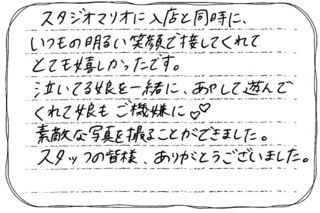 スタジオマリオに入店と同時に、
いつもの明るい笑顔で接してくれて
とても嬉しかったです。
泣いてる娘を一緒に、あやして遊んで
くれて娘もご機嫌に♡♡
素敵な写真を撮ることができました。
スタッフの皆様、ありがとうございました。